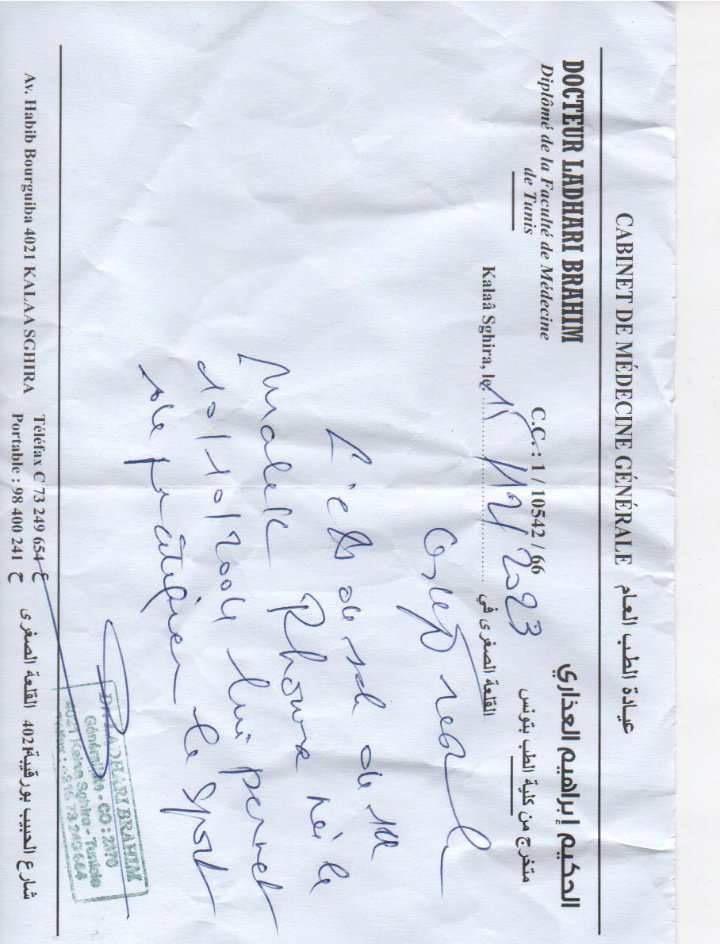 CABINET DE MÉDECINE GÉNÉRALE عيادة الطب العام
DOCTEUR LADHARI BRAHIM
Diplômé de la Faculté de Médecine
de Tunis
C.C. : 1 / 10542 / 66
الحكيم إبراهيم العذاري
متخرج من كلية الطب بتونس
Kalaâ Sghira, le 15/12/2023 القلعة الصغرى في
L'état de santé de
Malek née le
10/10/2004 lui permet
de pratiquer le sport
DR LADHARI BRAHIM
Généraliste - CO : 2376
4021 Kalaa Sghira - Tunisie
73 249 654
Av. Habib Bourguiba 4021 KALAA SGHIRA
Téléfax C 73 249 654 ع
Portable : 98 400 241 ج
شارع الحبيب بورقيبة 4021 القلعة الصغرى